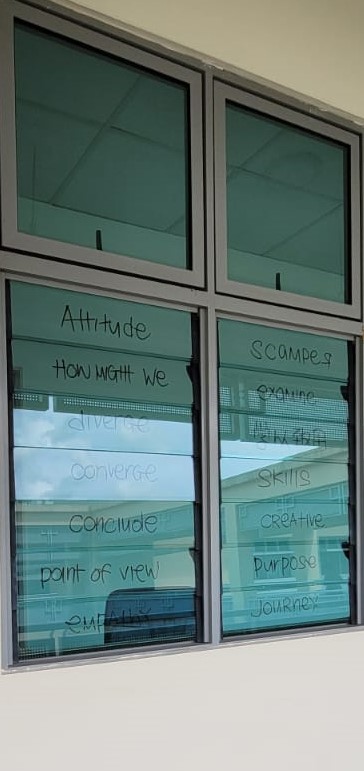 Attitude
HOW MIGHT WE
diverge
converge
conclude
point of view
empathy
scamper
examine
skills
creative
purpose
journey